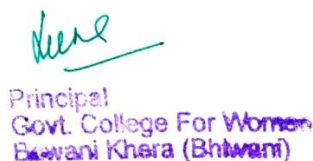 Principal
Govt. College For Women
Bawani Khera (Bhiwani)